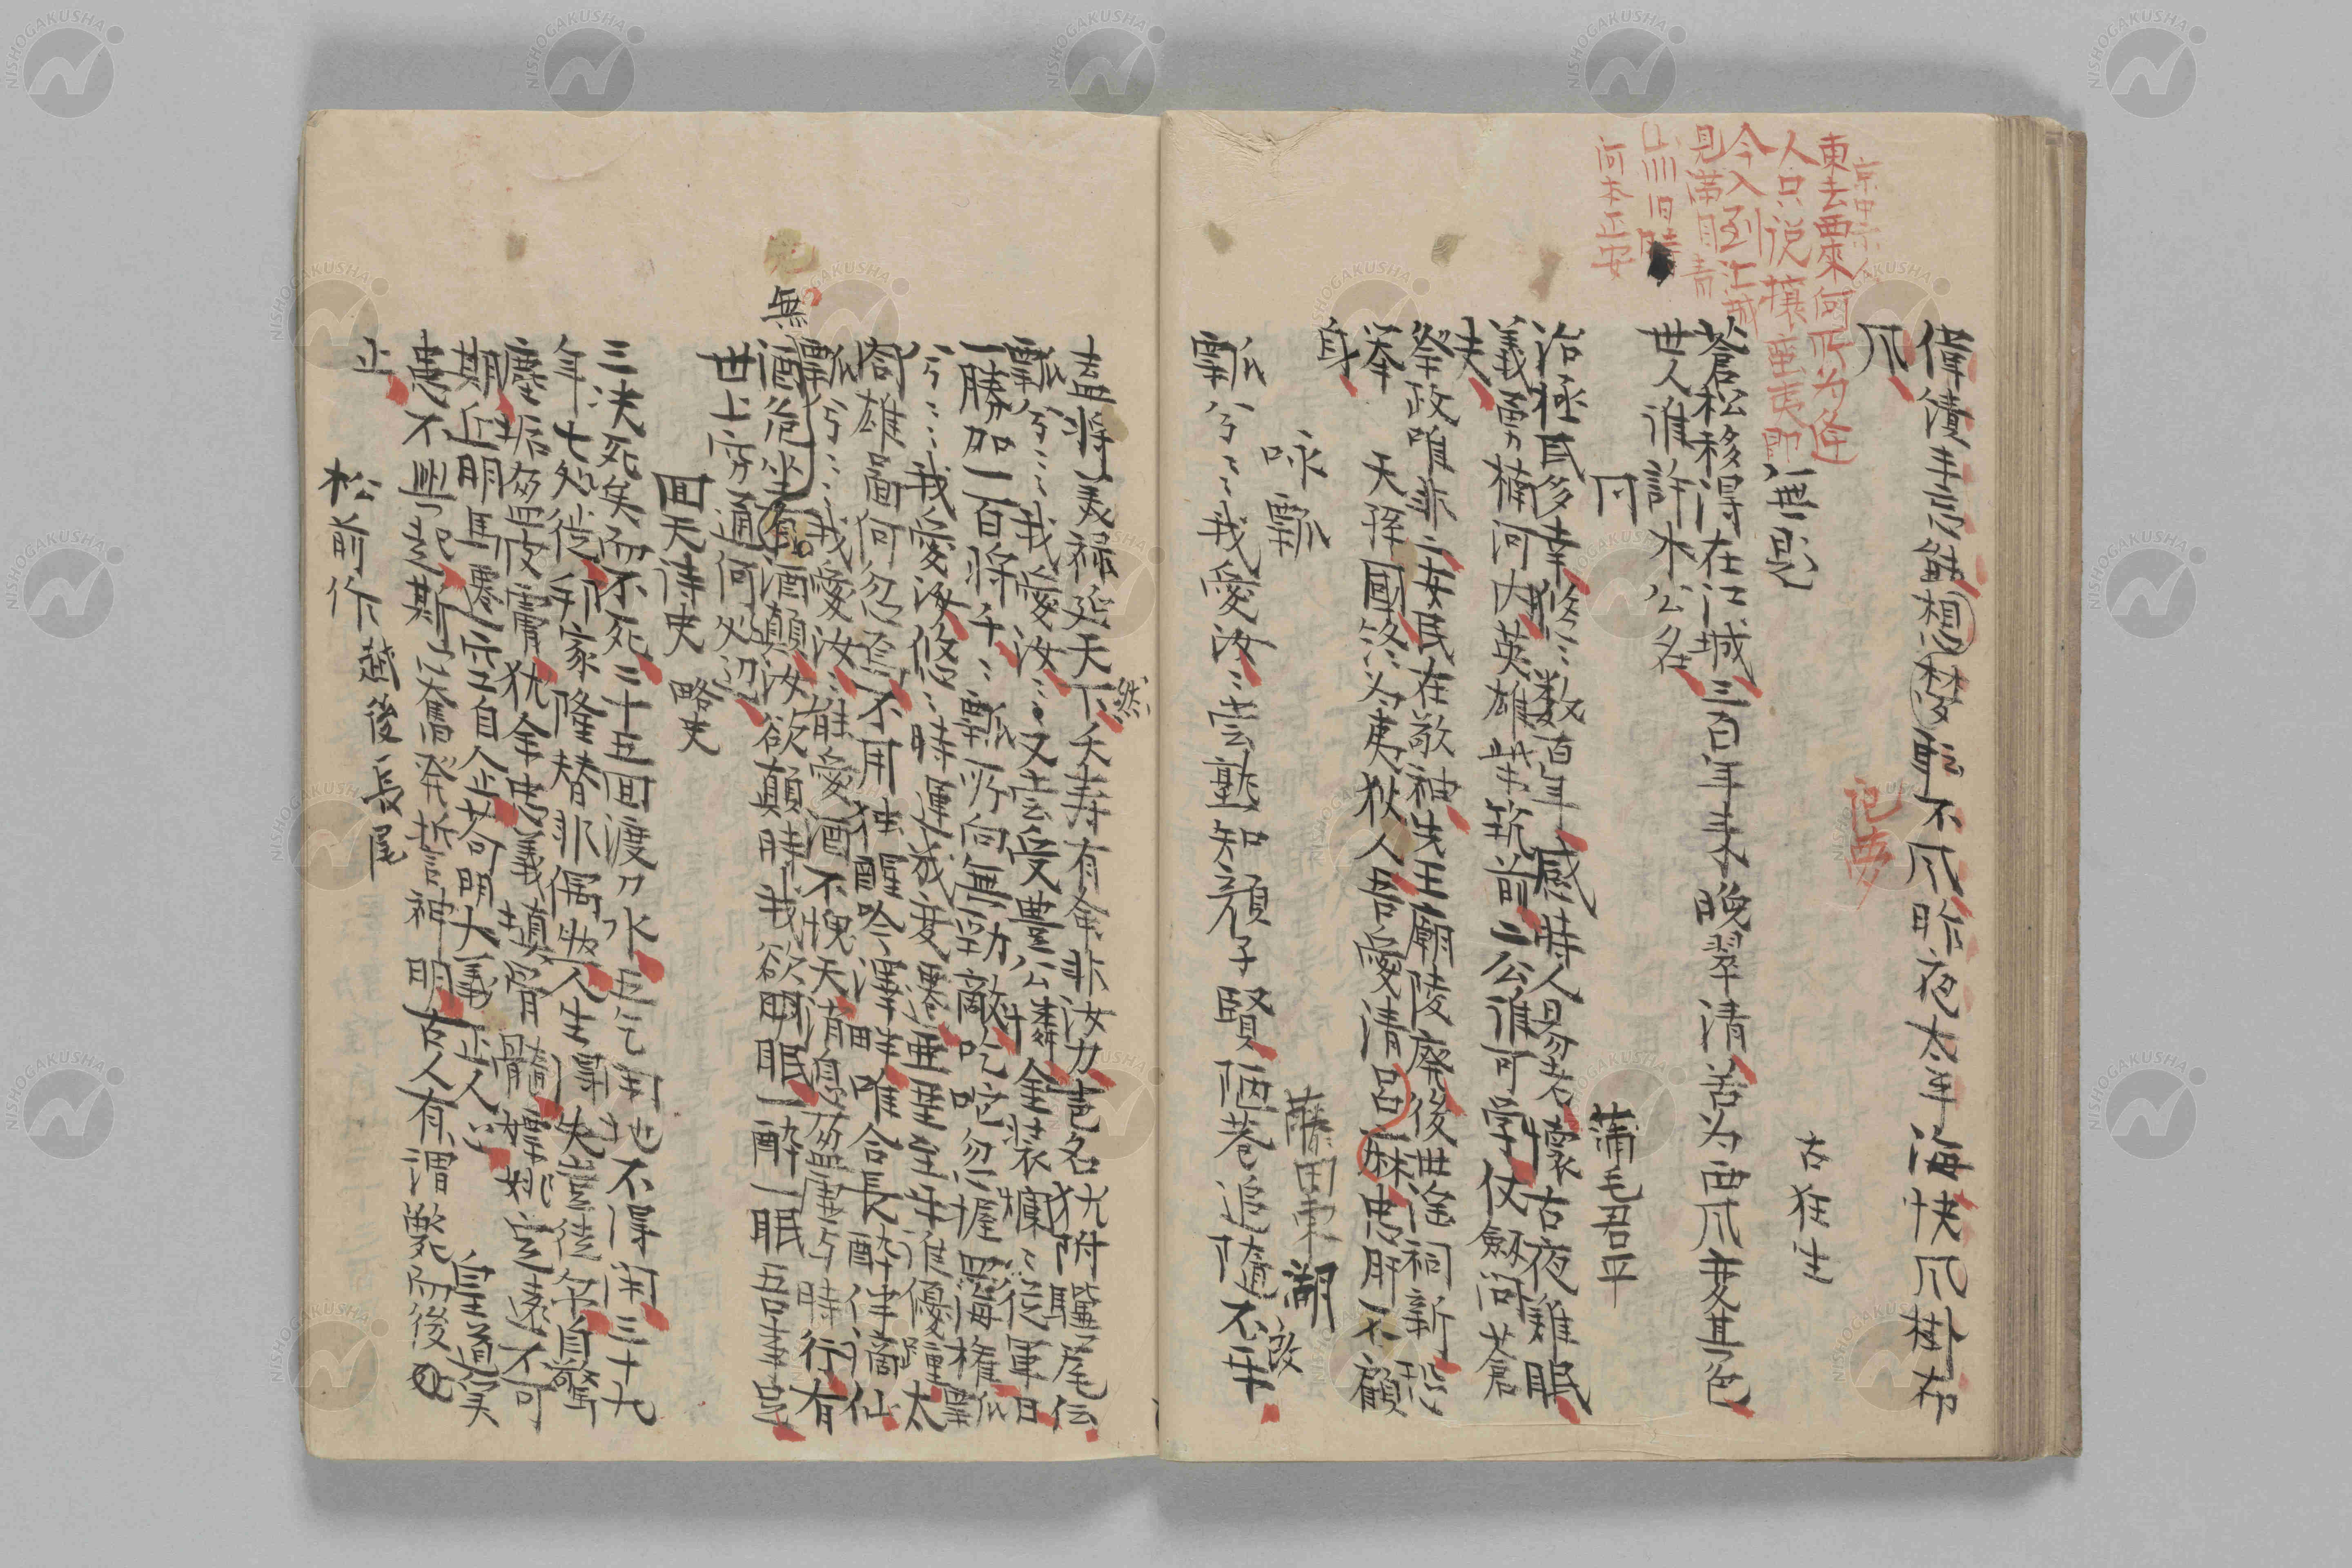 偉績未忘鯨想夢転不凡昨夜太平海快凡掛布
凡
記夢
無題
古狂生
東去粟何所为
人只说攘夷即
今入到江城
見滿目青
山川旧時
何本正安
蒼松移得在江城三百年来晚翠清苦为西凡变其色
世人谁許木公名
同
蒲毛吾平
治極民多幸悠〻数百年感時人易老懐古夜難眠
義勇楠河内英雄柴筑前二公誰可學仗劍問蒼
天
祭政唯非二安民在敬神先王廟陵廃後世淫祠新恐
奉 天孫國終为夷狄人吾愛清呂麻忠肝不顧
身
咏瓢
藤田東湖改
瓢兮〻〻我愛汝〻嘗熟知顔子賢陋巷追随不失
盍将美禄延天下夭寿有余非汝力声名犹附驥尾伝
然
瓢兮〻〻我愛汝〻又嘗受豊公憐金装燦〻従軍日
一勝加一百将千〻瓢所向無勁敵叱咤忽握四海権瓢
兮〻〻我愛汝悠〻時運幾変遷亜聖至生誰優踵太
閤雄圖何忽焉不用独醒吟澤畔唯合長酔伴謫仙
瓢兮〻〻我愛汝〻能愛酒不愧天消息盈虚与時行有
無
酒危坐有酒顛汝欲顛時我欲眠一酔一眠吾事足
世上穷通何処辺
回天詩史 略史
三决死矣而不死二十五回渡刀水五乞閑地不得閑三十九
年七処徙邦家隆替非偶然人生得失豈徒尔自驚
塵垢盈皮膚犹余忠義填骨髓嫖姚定遠不可
期丘明馬遷空自企苟明大義正人心 皇道奚
患不興起斯心奮発誓神明古人有謂斃而後已
止
松前作 越後長尾